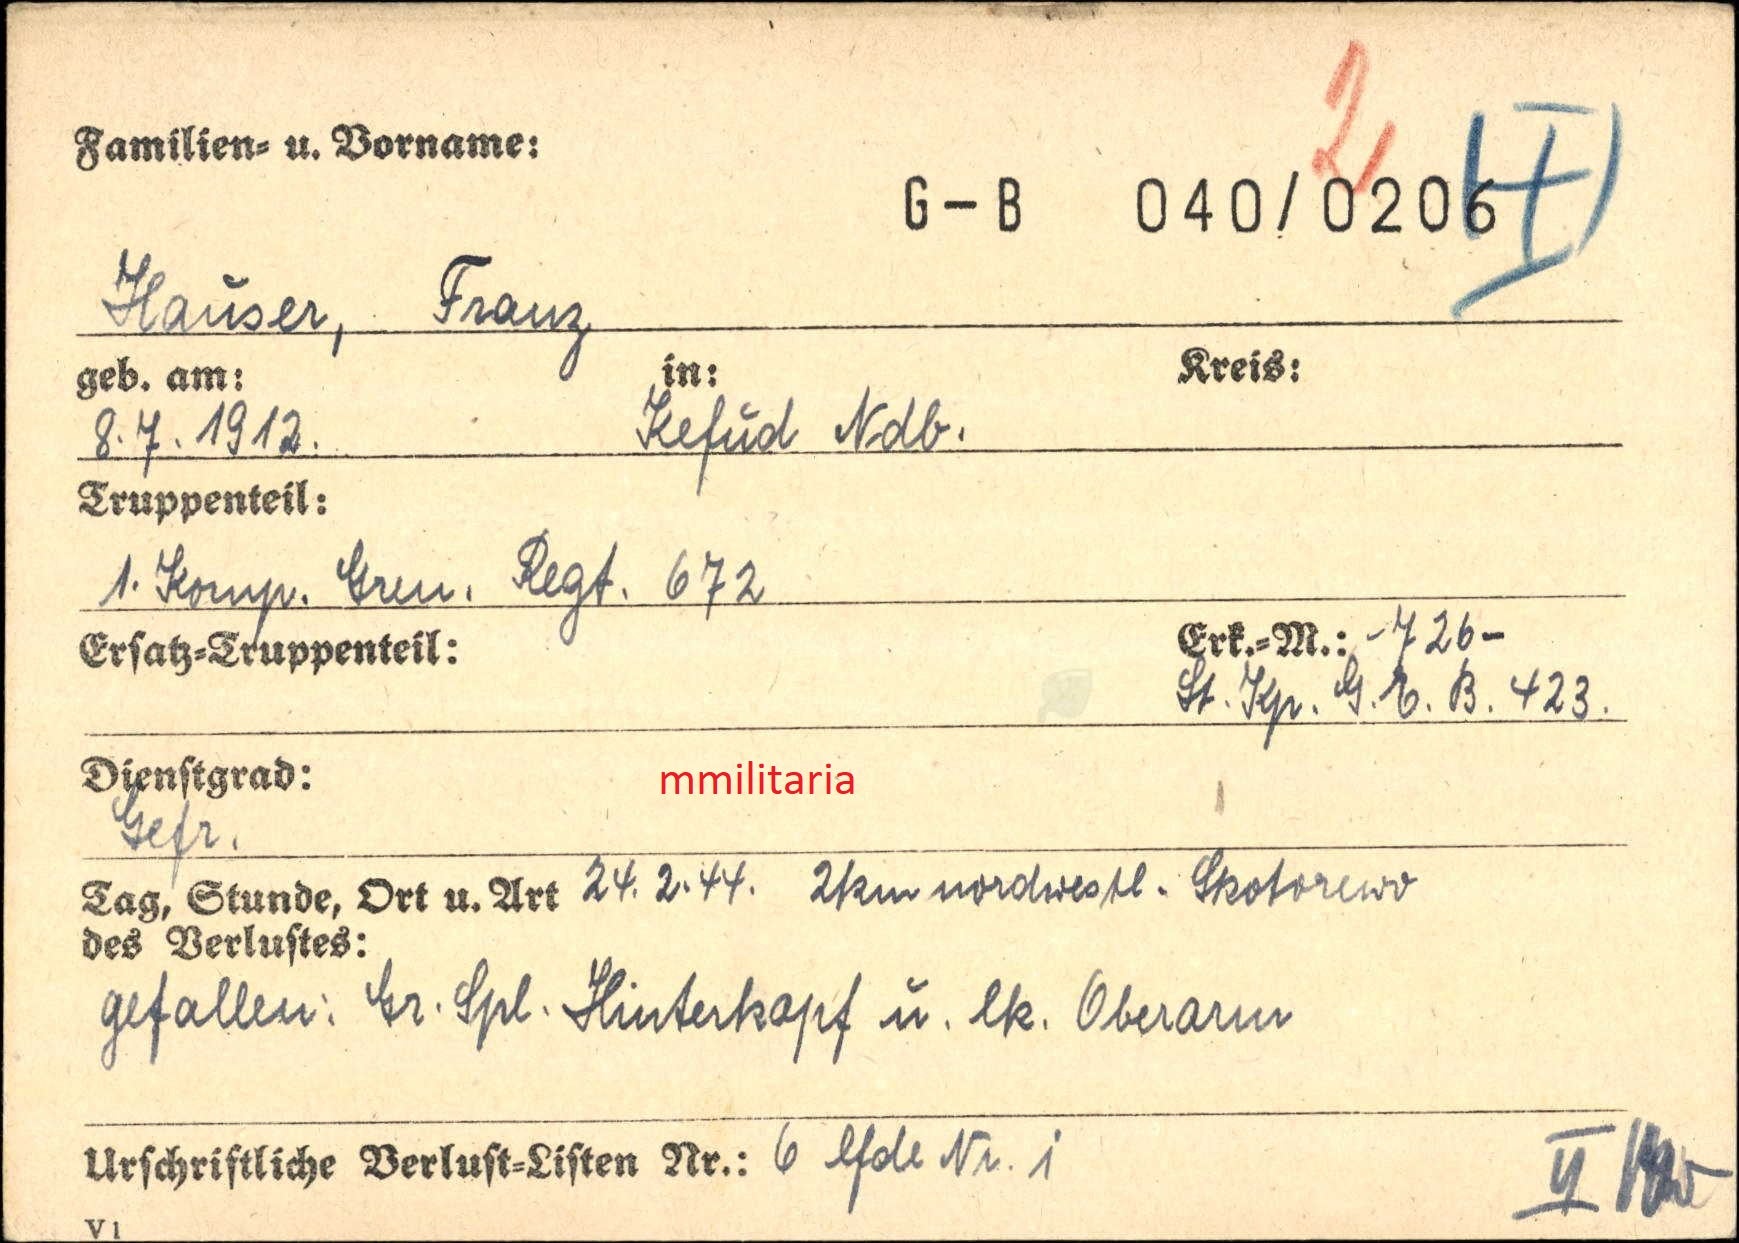 2 (I)
Familien- u. Vorname:
G-B 040/0206
Hauser, Franz
geb. am: in: Kreis:
8.7.1912. Kefud Ndb.
Truppenteil:
1. Komp. Gren. Regt. 672
Ersatz-Truppenteil: Erk.-M.: -726-
St. Kp. G. E. B. 423.
Dienstgrad:
mmilitaria
Gefr.
Tag, Stunde, Ort u. Art 24. 2. 44. 2km nordwestl. Skotorewo
des Verlustes:
gefallen: Gr. Spl. Hinterkopf u. lk. Oberarm
Urschriftliche Verlust-Listen Nr.: 6 lfde Nr. 1
V 1